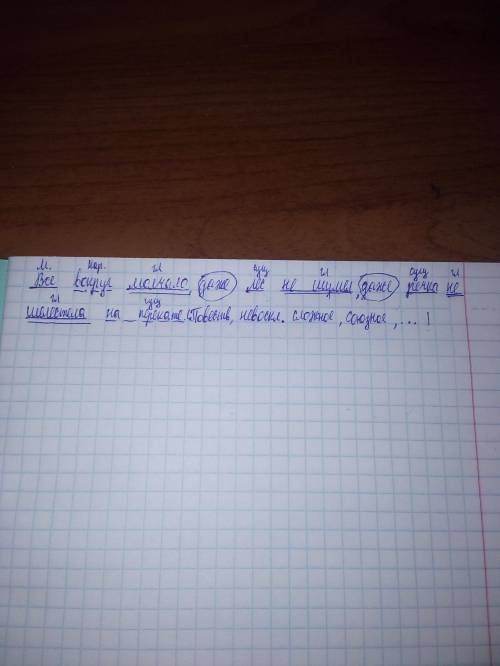 м. нар. гл сущ гл сущ гл
Все вокруг молчало, даже лес не шумел, даже речка не
гл сущ
шелестела на перекате. (Повеств, невоскл. сложное, союзное, ... )